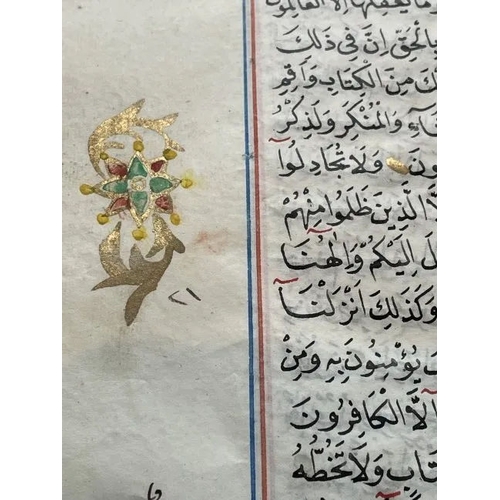 وَمَا يَعْقِلُهَا اِلَّا الْعَالِمُونَ
بِالْحَقِّ اِنَّ فِي ذٰلِكَ
كَ مِنَ الْكِتَابِ وَاَقِمِ
اءِ وَالْمُنْكَرِ وَلَذِكْرُ
ونَ وَلَا تُجَادِلُوا
لَّا الَّذِينَ ظَلَمُوا مِنْهُمْ
لَ اِلَيْكُمْ وَاِلٰهُنَا
وَكَذٰلِكَ اَنْزَلْنَا
يُؤْمِنُونَ بِهِ وَمِنْ
اِلَّا الْكَافِرُونَ
تَابٍ وَلَا تَخُطُّهُ